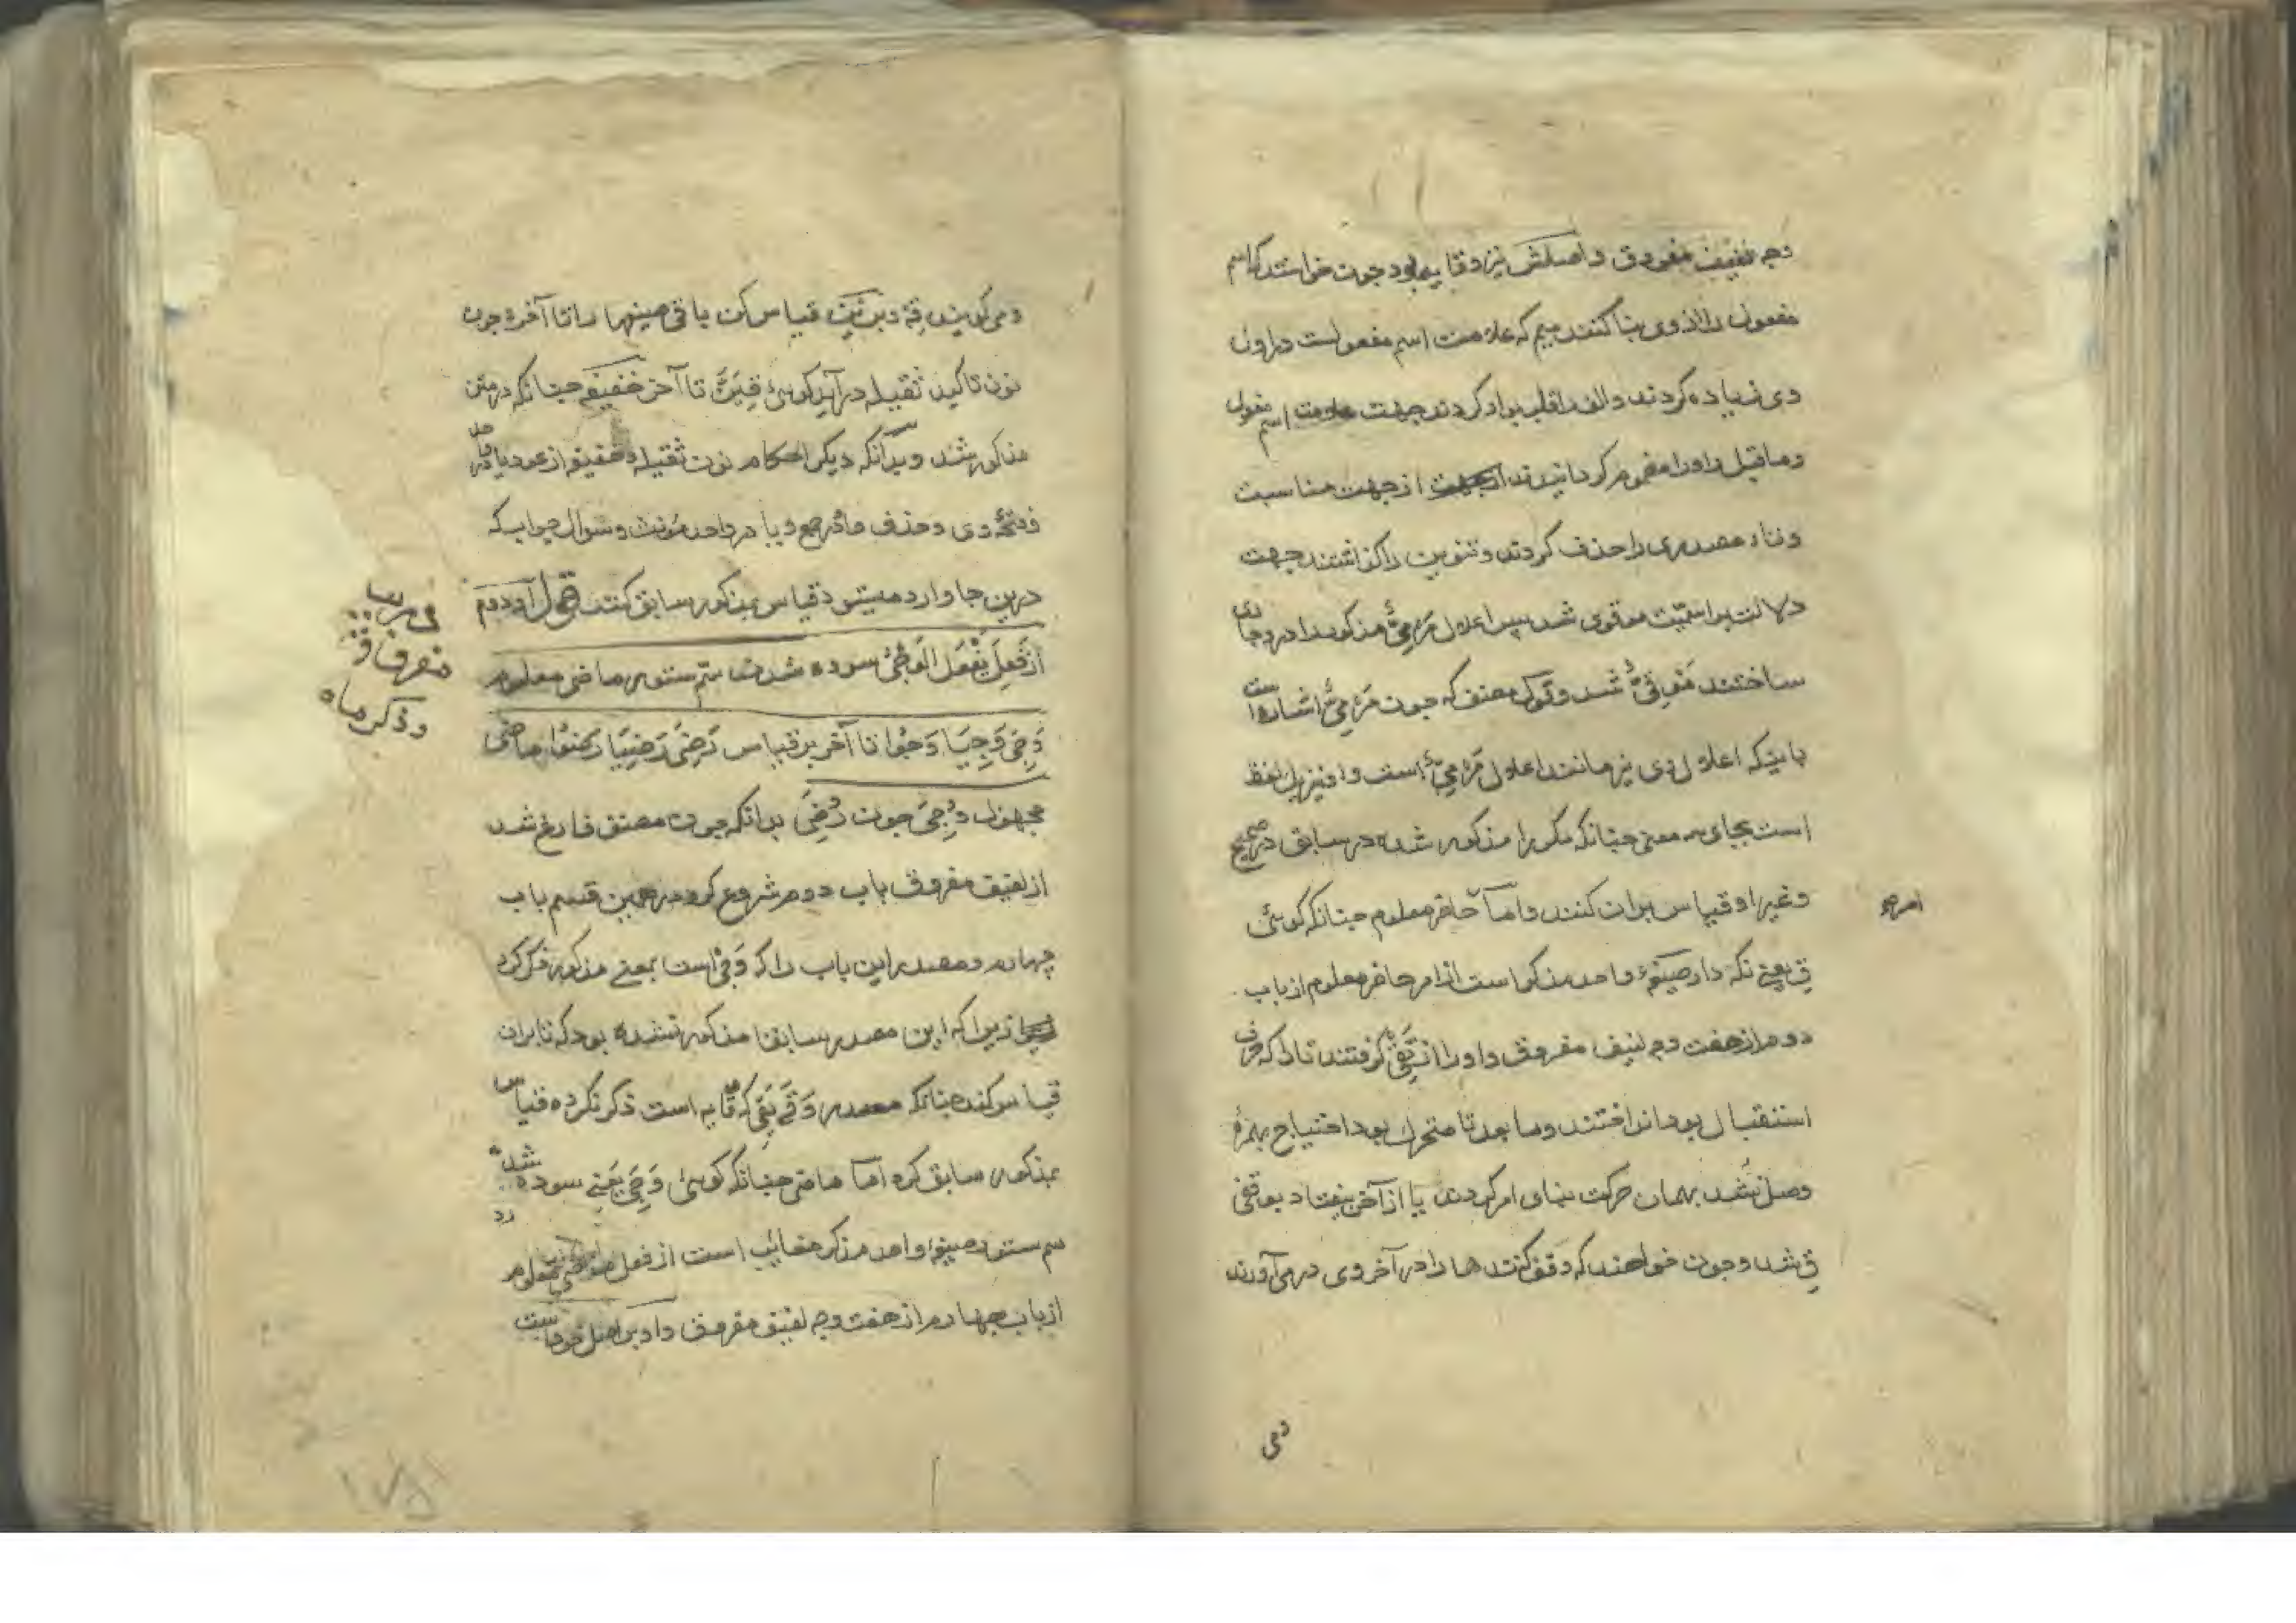 وجه لفیف مفروق و اصلش نیز وقایه بود چون خواستند که اسم
مفعول را از وی بنا کنند میم که علامت اسم مفعولست در اول
وی زیاده کردند و الف را قلب بواو کردند جهت علامت اسم مفعول
و ماقبل واو را مضموم گردانیدند از جهت مناسبت
و تاء مصدری را حذف کردند و تنوین را گذاشتند جهت
دلالت بر اسمیت موقوی شد پس اعلال مَرْمِیٌّ مذکور را در وی جاری
ساختند مَوْقِیٌّ شد و قول مصنف که چون مَرْمِیٌّ اشاره است
باینکه اعلال وی نیز مانند اعلال مَرْمِیٌّ است و او نیز یک لفظ
است بجای سه معنی چنانکه مکررا مذکور شده در سابق در صحیح
و غیر او قیاس بران کنند و اما حاضر معلوم چنانکه گوئی
امر ح
قِ یعنی نگه دار صیغهٔ واحد مذکر است از امر حاضر معلوم از باب
دوم از هفت وجه لفیف مفروق و او را از تَقِی گرفتند تا را که حرف
استقبال بود انداختند و ما بعد تا متحرک بود احتیاج بهمزهٔ
وصل نشد بهمان حرکت بنای امر کردند یا از آخر بیفتاد بوقفی
قِ شد و چون خواهند که وقف کنند ها را در آخر وی در می آورند
و می
و می گویند قِهْ و برین قیاس کن باقی صیغها را تا آخر و چون
نون تاکید ثقیله در آید گوئی قِیَنَّ تا آخر خفیفه چنانکه در متن
مذکور شد و بدانکه دیگر احکام نون ثقیله و خفیفه از عود یا در
فتحهٔ وی و حذف واو در جمع و یا در واحد مؤنث و سوال جواب که
درین جا وارد میشود قیاس بمذکور سابق کنند قوله و دوم
از فَعِلَ یَفْعَلُ الوَجْیُ سوده شدن سم ستور ماضی معلوم
وَجِیَ وَجِیَا وَجُوْا تا آخر بر قیاس رَضِیَ رَضِیَا رَضُوْا ماضی
مجهول وُجِیَ چون رُضِیَ بدانکه چون مصنف فارغ شد
از لفیف مفروق باب دوم شروع کرد در همین قسم باب
چهارم و مصدر این باب را که وَجْیٌ است بمعنے مذکور ذکر کرد
زیرا که این مصدر سابقا مذکور نشده بود که تا بران
قیاس کند چنانکه مصدر وَقٰی یَقِی که وقایه است ذکر نکرده قیاس
بمذکور سابق کرد اما ماضی چنانکه گوئی وَجِیَ یعنے سوده شد
سم ستور صیغهٔ واحد مذکر مغائب است از فعل ماضی معلوم
از باب چهارم از هفت وجه لفیف مفروق و او بر اصل خود است